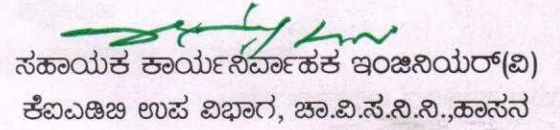 ಸಹಾಯಕ ಕಾರ್ಯನಿರ್ವಾಹಕ ಇಂಜಿನಿಯರ್(ವಿ)
ಕೆಐಎಡಿಬಿ ಉಪ ವಿಭಾಗ, ಚಾ.ವಿ.ಸ.ನಿ.ನಿ.,ಹಾಸನ